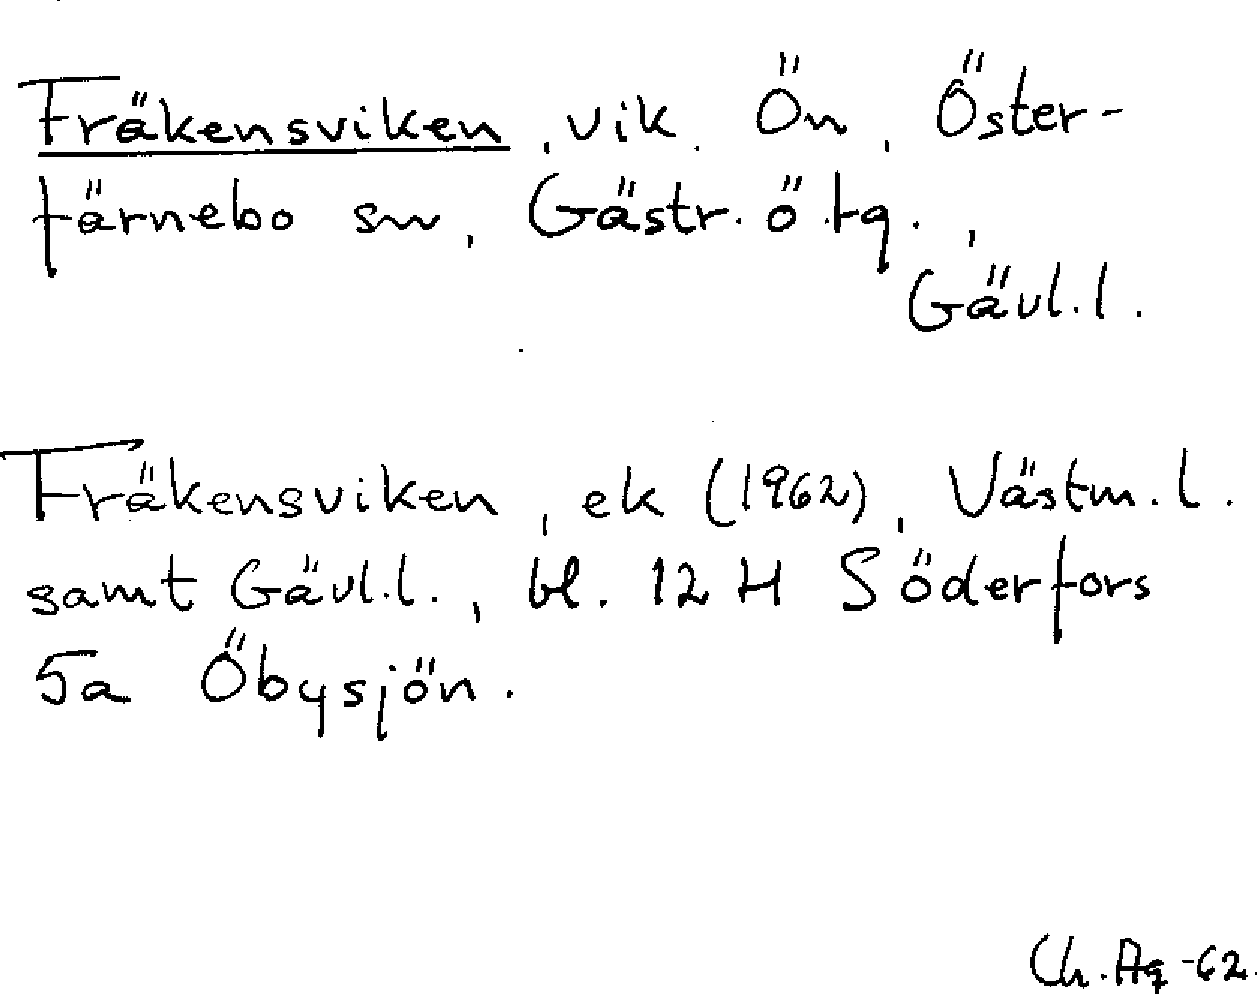 Fräkensviken, vik, Ön, Öster-
färnebo sn, Gästr. ö. tg.,
Gävl.l.
Fräkensviken, ek (1962), Västm.l.
samt Gävl.l., bl. 12 H Söderfors
5a Öbysjön.
Ch. Ag -62.